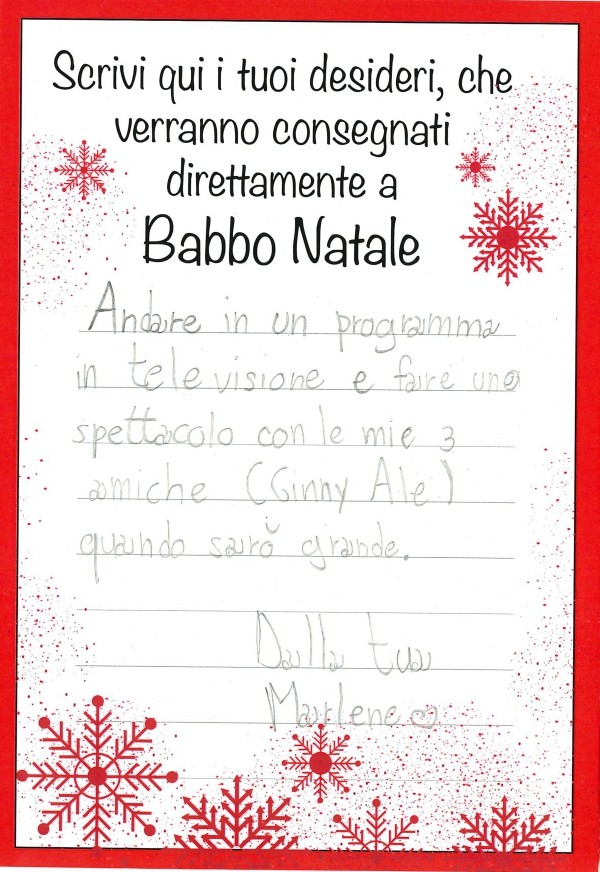 Scrivi qui i tuoi desideri, che
verranno consegnati
direttamente a
Babbo Natale
Andare in un programma
in televisione e fare uno
spettacolo con le mie 3
amiche (Ginny Ale)
quando sarò grande.
Dalla tua
Marlene